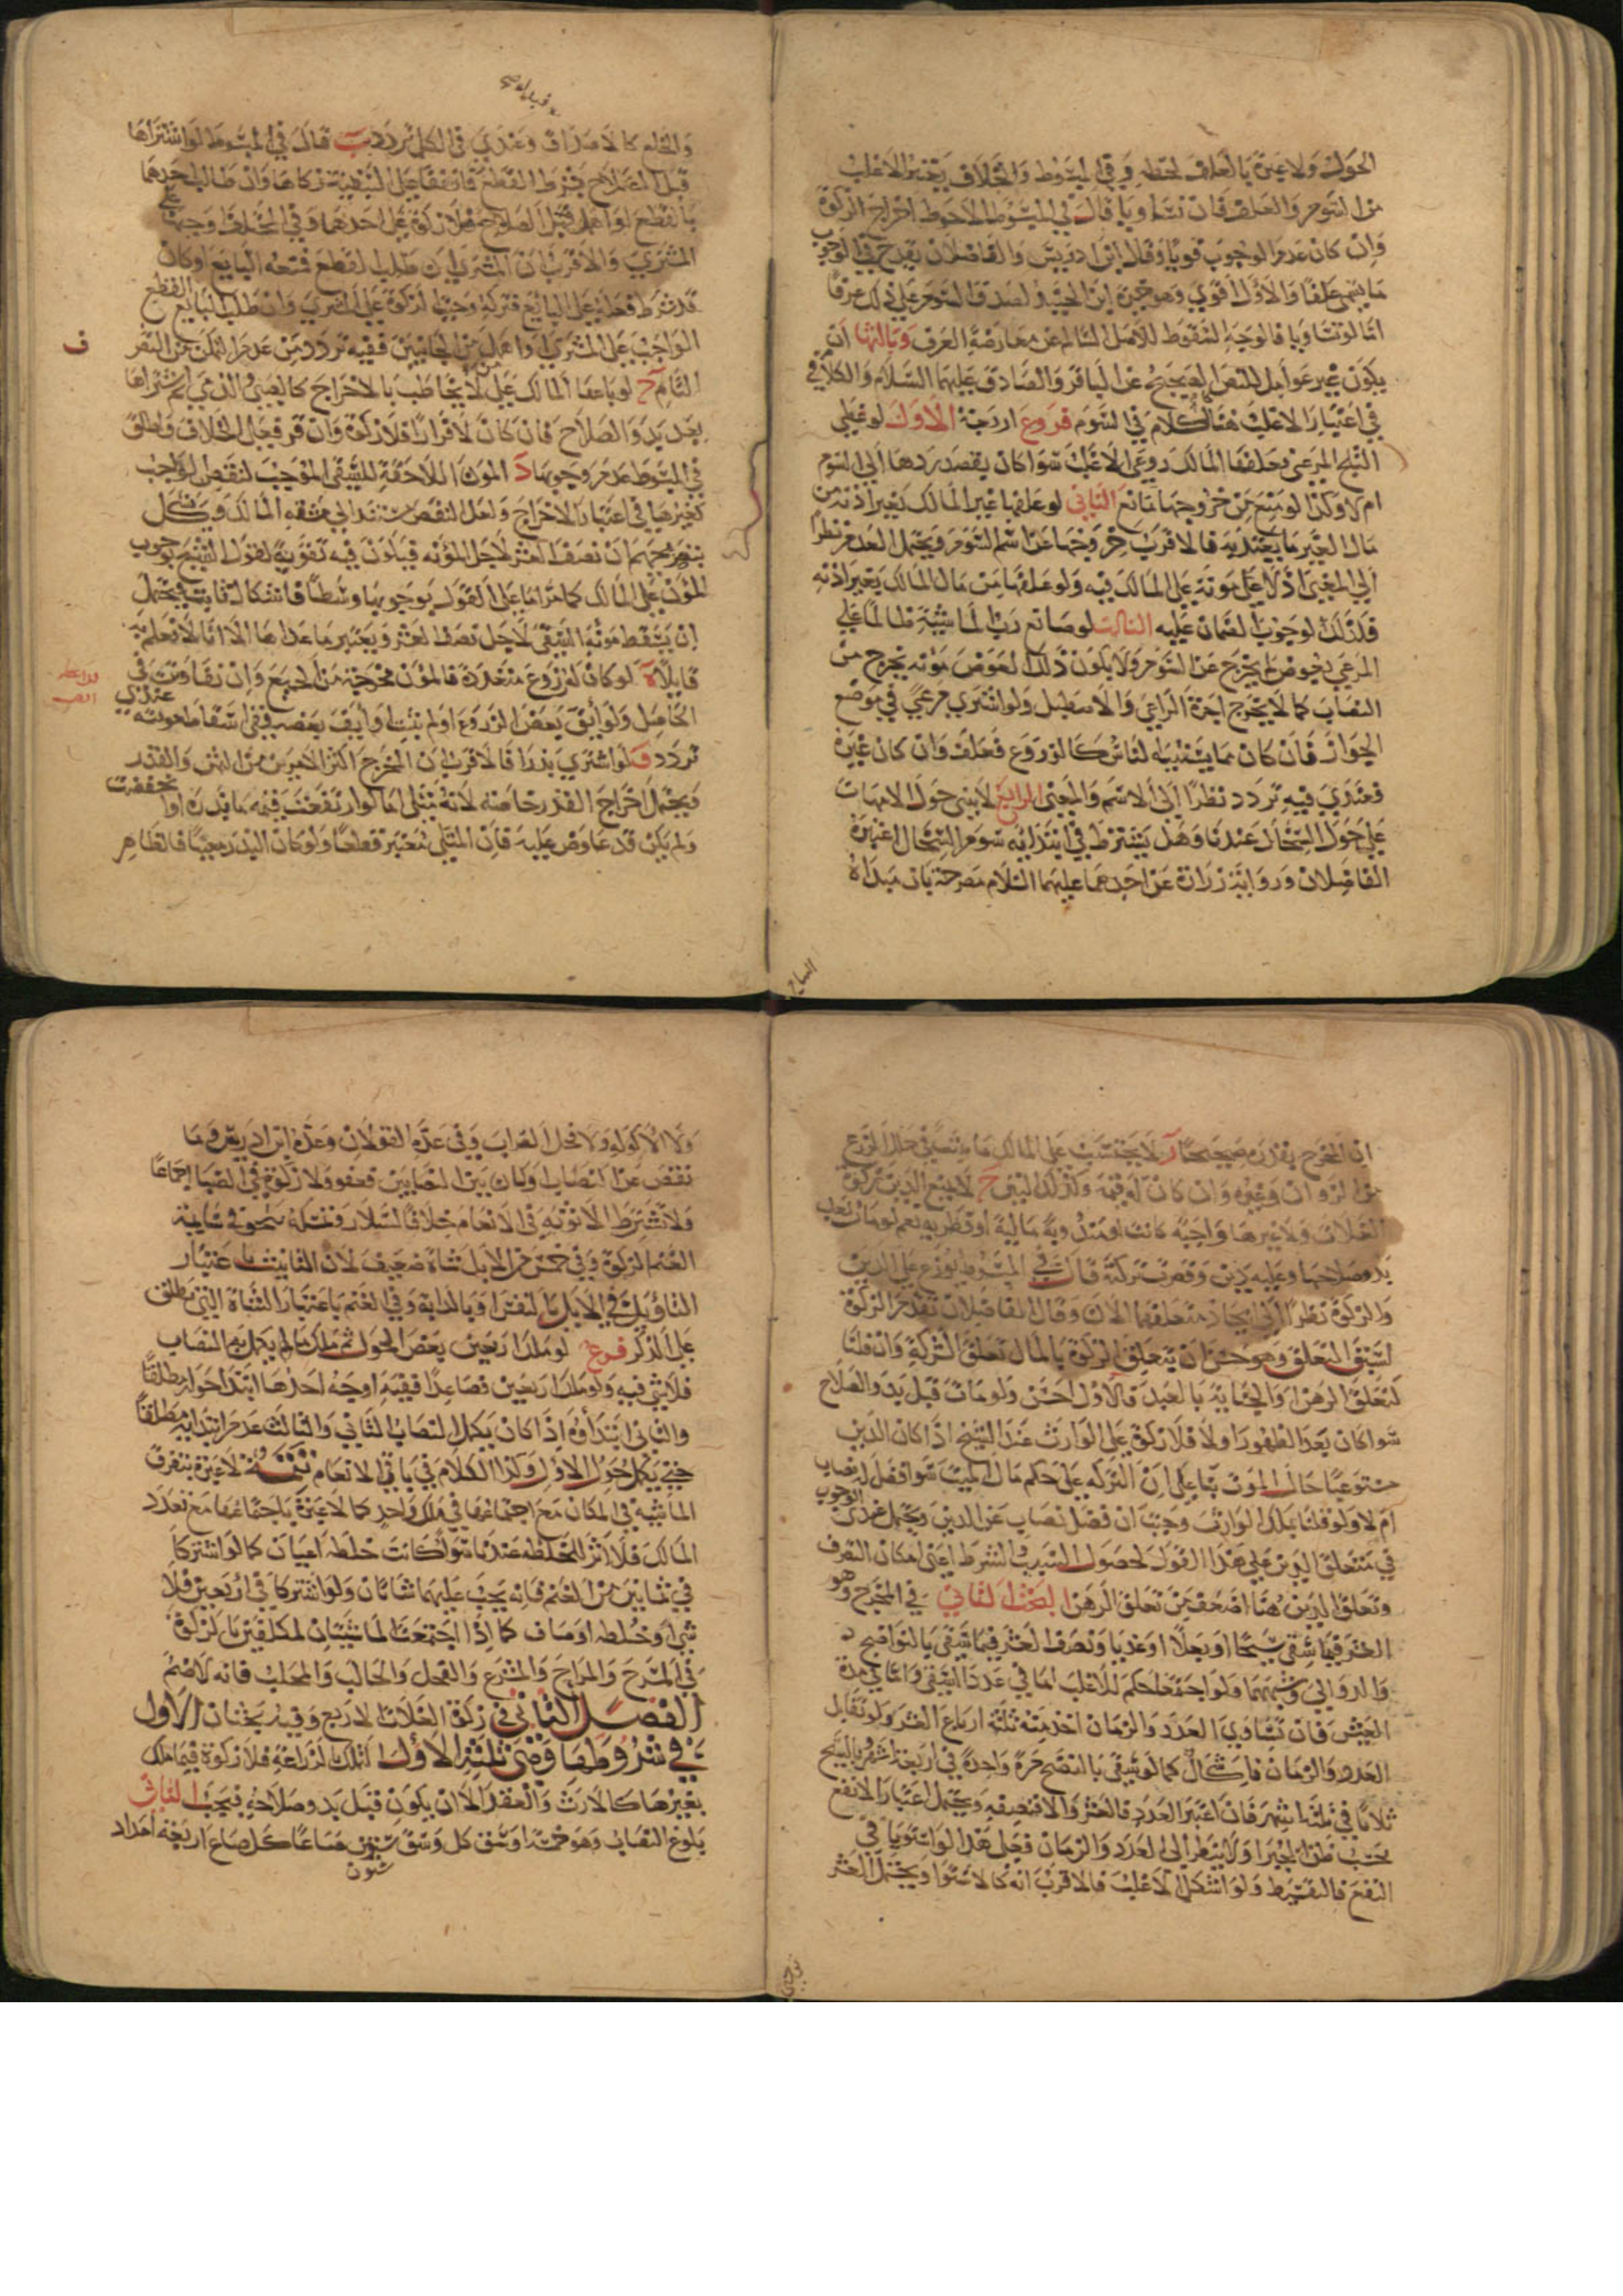 الحول ولا عبرة بالعلف لحظة وفي المبسوط والخلاف يعتبر الاغلب
من السوم والعلف فان تساويا قال في المبسوط الاحوط اخراج الزكوة
وان كان عدم الوجوب قويا وقال ابن ادريس والفاضلان يقدح في الوجوب
ما يسمى علفا والاول اقوى وهو خيرة ابن الجنيد لصدق السوم على ذلك عرفا
اما لو تساويا فالوجه السقوط للاصل السالم عن معارضة العرف وثالثها ان
يكون غير عوامل للنص الصحيح عن الباقر والصادق عليهما السلام والكلام في
في اعتبار الاغلب هنا كالكلام في السوم فروع اربعة الاول لو غطى
الثلج المرعى فعلفها المالك روعى الاغلب سوا كان يقصد ردها الى السوم
ام لا وكذا لو منع من خروجها مانع الثاني لو علفها غير المالك بغير اذنه من
مال الغير ما يعتد به فالاقرب خروجها عن اسم السوم ويحتمل العدم نظرا
الى المعنى اذ لا مؤنة على المالك فيه ولو علفها من مال المالك بغير اذنه
فكذلك لوجوب الضمان عليه الثالث لو صانع رب الماشية ظالما على
المرعى بعوض لم يخرج عن السوم ولا يكون ذلك العوض مؤنة يخرج من
النصاب كما لا يخرج اجرة الراعي والاصطبل ولو اشترى مرعى في موضع
الجواز فان كان مما يستنبته الناس كالزروع فعلف وان كان غيره
فعندي فيه تردد نظرا الى الاسم والمعنى الرابع لا يبنى حول الامهات
على حول السخال عندنا وهل يشترط في ابتدائه سوم السخال اعتبره
الفاضلان ورواية زرارة عن احدهما عليهما السلام مصرحة بان مبداه
والخلع كالاصداق وعندي في الكل تردد ب قال في المبسوط لو اشتراها
قبل الصلاح بشرط القطع فاتفقا على التبقية زكاها وان طالب احدهما
بالقطع او اهمل قبل الصلاح فلا زكوة على احدهما وفي الخلاف وجبها على
المشتري والاقرب ان المشتري ان طلب القطع فمنعه البايع او كان
قد شرط قطعه على البايع فتركه وجبت الزكوة على المشتري وان طلب البايع القطع
الواجب على المشتري او اهمل من الجانبين ففيه تردد من عدم التمكن من التصرف
التام ج لو باعها المالك على من لا يخاطب بالاخراج كالصبي والذمي ثم اشتراها
بعد بدو الصلاح فان كان لا فرارا فلا زكوة وان فر فمحل الخلاف واطلق
في المبسوط عدم وجوبها د المؤن اللاحقة للسقي الموجب لنقص الواجب
كغيرها في اعتبار الاخراج ولعل النقص مستند الى مشقة المالك ويشكل
بتصريحهم ان نصف العشر لاجل المؤنة فيكون فيه تقوية لقول الشيخ بوجوب
المؤن على المالك كما مر اما على القول بوجوبها وسطا فاشكال ثابت فيحتمل
ان يسقط مؤنة السقي لاجل نصف العشر ويعتبر ما عداها الا انا لا نعلم به
قايلا ه لو كان له زروع متعددة فالمؤن مخرجة من الجميع وان تفاوتت في
الحاصل ولو ابق بعض الزروع او لم ينبت او ايف بعضه ففي اسقاط مؤنته عندي
تردد و لو اشترى بذرا فالاقرب ان المخرج اكثر الامرين من الثمن والقدر
ويحتمل اخراج القدر خاصة لانه مثلي اما لو ارتفعت قيمة ما بذره او انخفضت
ولم يكن قد عاوض عليه فان المثلي معتبر قطعا ولو كان البذر معيبا فالظاهر
ان المخرج بقدره صحيحا ز لا يحتسب على المالك
من الزوان وغيره وان كان له قيمة وكذا التبن ح لا يمنع الدين زكوة
الغلات ولا غيرها واجبة كانت او مندوبة مالية او فطرية نعم لو مات بعد
بدو صلاحها وعليه دين وقصرت تركته قال في المبسوط يوزع على الدين
والزكوة نظرا الى ايجاد متعلقهما الان وقال الفاضلان تقدم الزكوة
لسبق التعلق وهو حسن ان يتعلق الزكوة بالمال تعلق الشركة وان قلنا
كتعلق الرهن او الجناية بالعبد فالاول احسن ولو مات قبل بدو الصلاح
سوا كان بعد الظهور او لا فلا زكوة على الوارث عند الشيخ اذا كان الدين
مستوعبا حال الموت بنا على ان التركة على حكم مال الميت سوا فضل النصاب
ام لا ولو قلنا بملك الوارث وجبت ان فضل نصاب عن الدين ويحتمل عندي الوجوب
في متعلق الدين على هذا القول لحصول السبب والشرط اعني امكان التصرف
وتعلق الدين هنا اضعف من تعلق الرهن البحث الثاني في المخرج وهو
العشر فيما سقي سيحا او بعلا او عذيا ونصف العشر فيما سقي بالنواضح
والدوالي وشبههما ولو اجتمعا حكم للاغلب اما في عدد السقي واما في مدة
العيش فان تساوى العدد والزمان اخذ منه ثلثة ارباع العشر ولو تقابل
العدد والزمان فاشكال كما لو سقي بالنضح مرة واحدة في اربعة اشهر وبالسيح
ثلاثا في ثلثة اشهر فان اعتبر العدد فالعشر والا فنصفه ويحتمل اعتبار الانفع
بحسب ظن الخبراء ولا ينظر الى العدد والزمان فعلى هذا لو استويا في
النفع فالتقسيط ولو اشكل الاغلب فالاقرب انه كالاستوا ويحتمل العشر
ولا الاكولة ولا فحل الضراب وفي عده القولان وعده ابن ادريس وما
نقص عن النصاب او كان بين النصابين فعفو ولا زكوة في الصيا اجماعا
ولا تشترط الانوثة في الانعام خلافا لسلار
الغنم الزكوة وفي خمس من الابل شاة ضعيف لان التانيث باعتبار
التاويل في الابل بالنفس او بالدابة وفي الغنم باعتبار الشاة التي تطلق
على الذكر فرع لو ملك اربعين بعض الحول ثم ملك ما لم يكمل به النصاب
فلا شي فيه ولو ملك اربعين فصاعدا ففيه اوجه احدها ابتدا حوله مطلقا
والثاني ابتداؤه اذا كان يكمل النصاب الثاني والثالث عدم ابتدايه مطلقا
حتى يكمل حول الاول وكذا الكلام في باقي الانعام تتمة لا عبرة بتفرق
الماشية في المكان مع اجتماعها في ملك واحد كما لا عبرة باجتماعها مع تعدد
المالك فلا اثر للخلطة عندنا سوا كانت خلطة اعيان كما لو اشتركا
في ثمانين من الغنم فانه يجب عليهما شاتان ولو اشتركا في اربعين فلا
شي او خلطة اوصاف كما اذا اجتمعت الماشيتان لمكلفين بالزكوة
في المسرح والمراح والمشرع والفحل والحالب والمحلب فانه لا ضم
الفصل الثاني في زكوة الغلات الاربع وفيه بحثان الاول
في شروطها وهي ثلثة الاول التملك بالزراعة فلا زكوة فيما ملك
بغيرها كالارث والعقد الا ان يكون قبل بدو صلاحه فيجب الثاني
بلوغ النصاب وهو خمسة اوسق كل وسق ستون صاعا كل صاع اربعة امداد